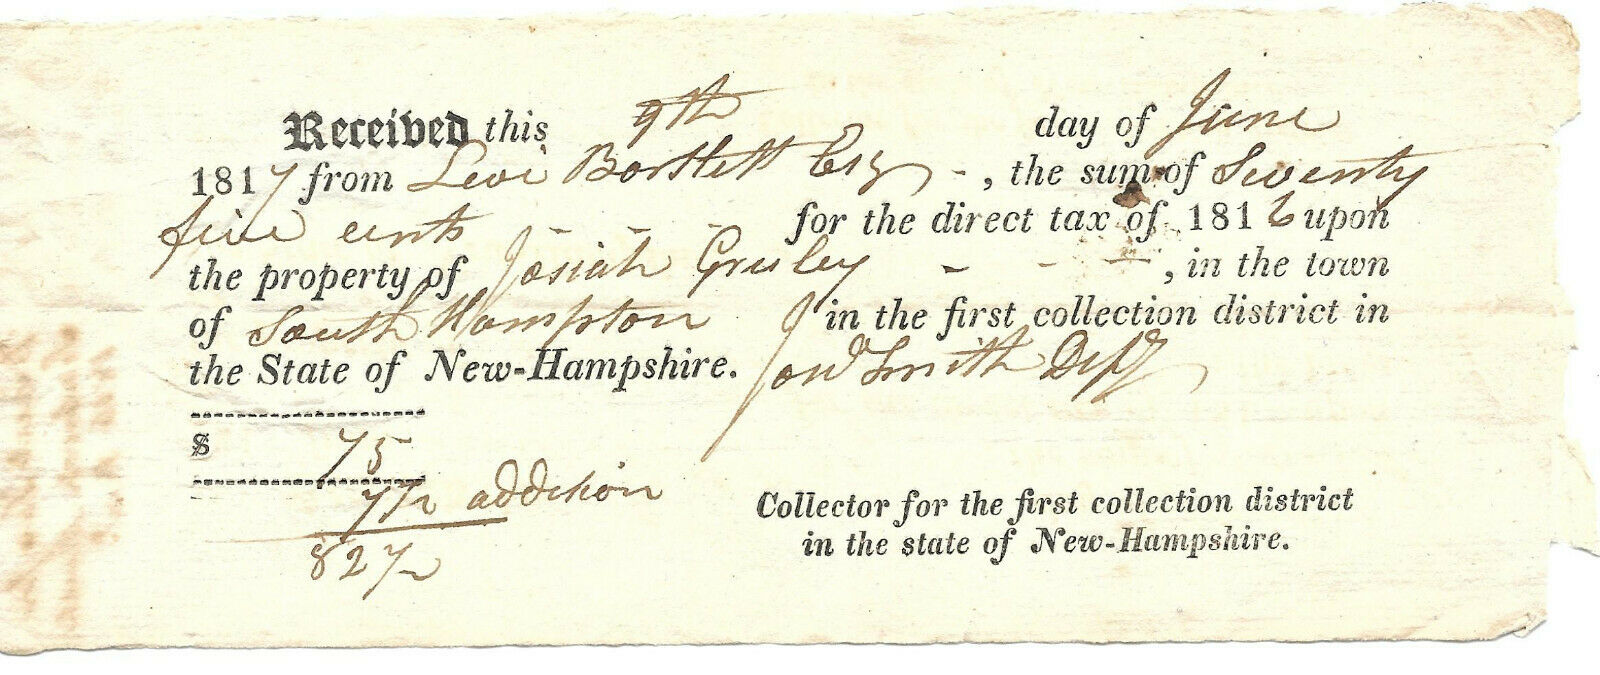 Received this 9th day of June
1817 from Levi Bartlett Esq -, the sum of Seventy
five cents - - - for the direct tax of 1816 upon
the property of Josiah - - -, in the town
of South Hampton in the first collection district in
the State of New-Hampshire. Jon Smith Depy
$ 75
7 1/2 addition
82 1/2
Collector for the first collection district
in the state of New-Hampshire.